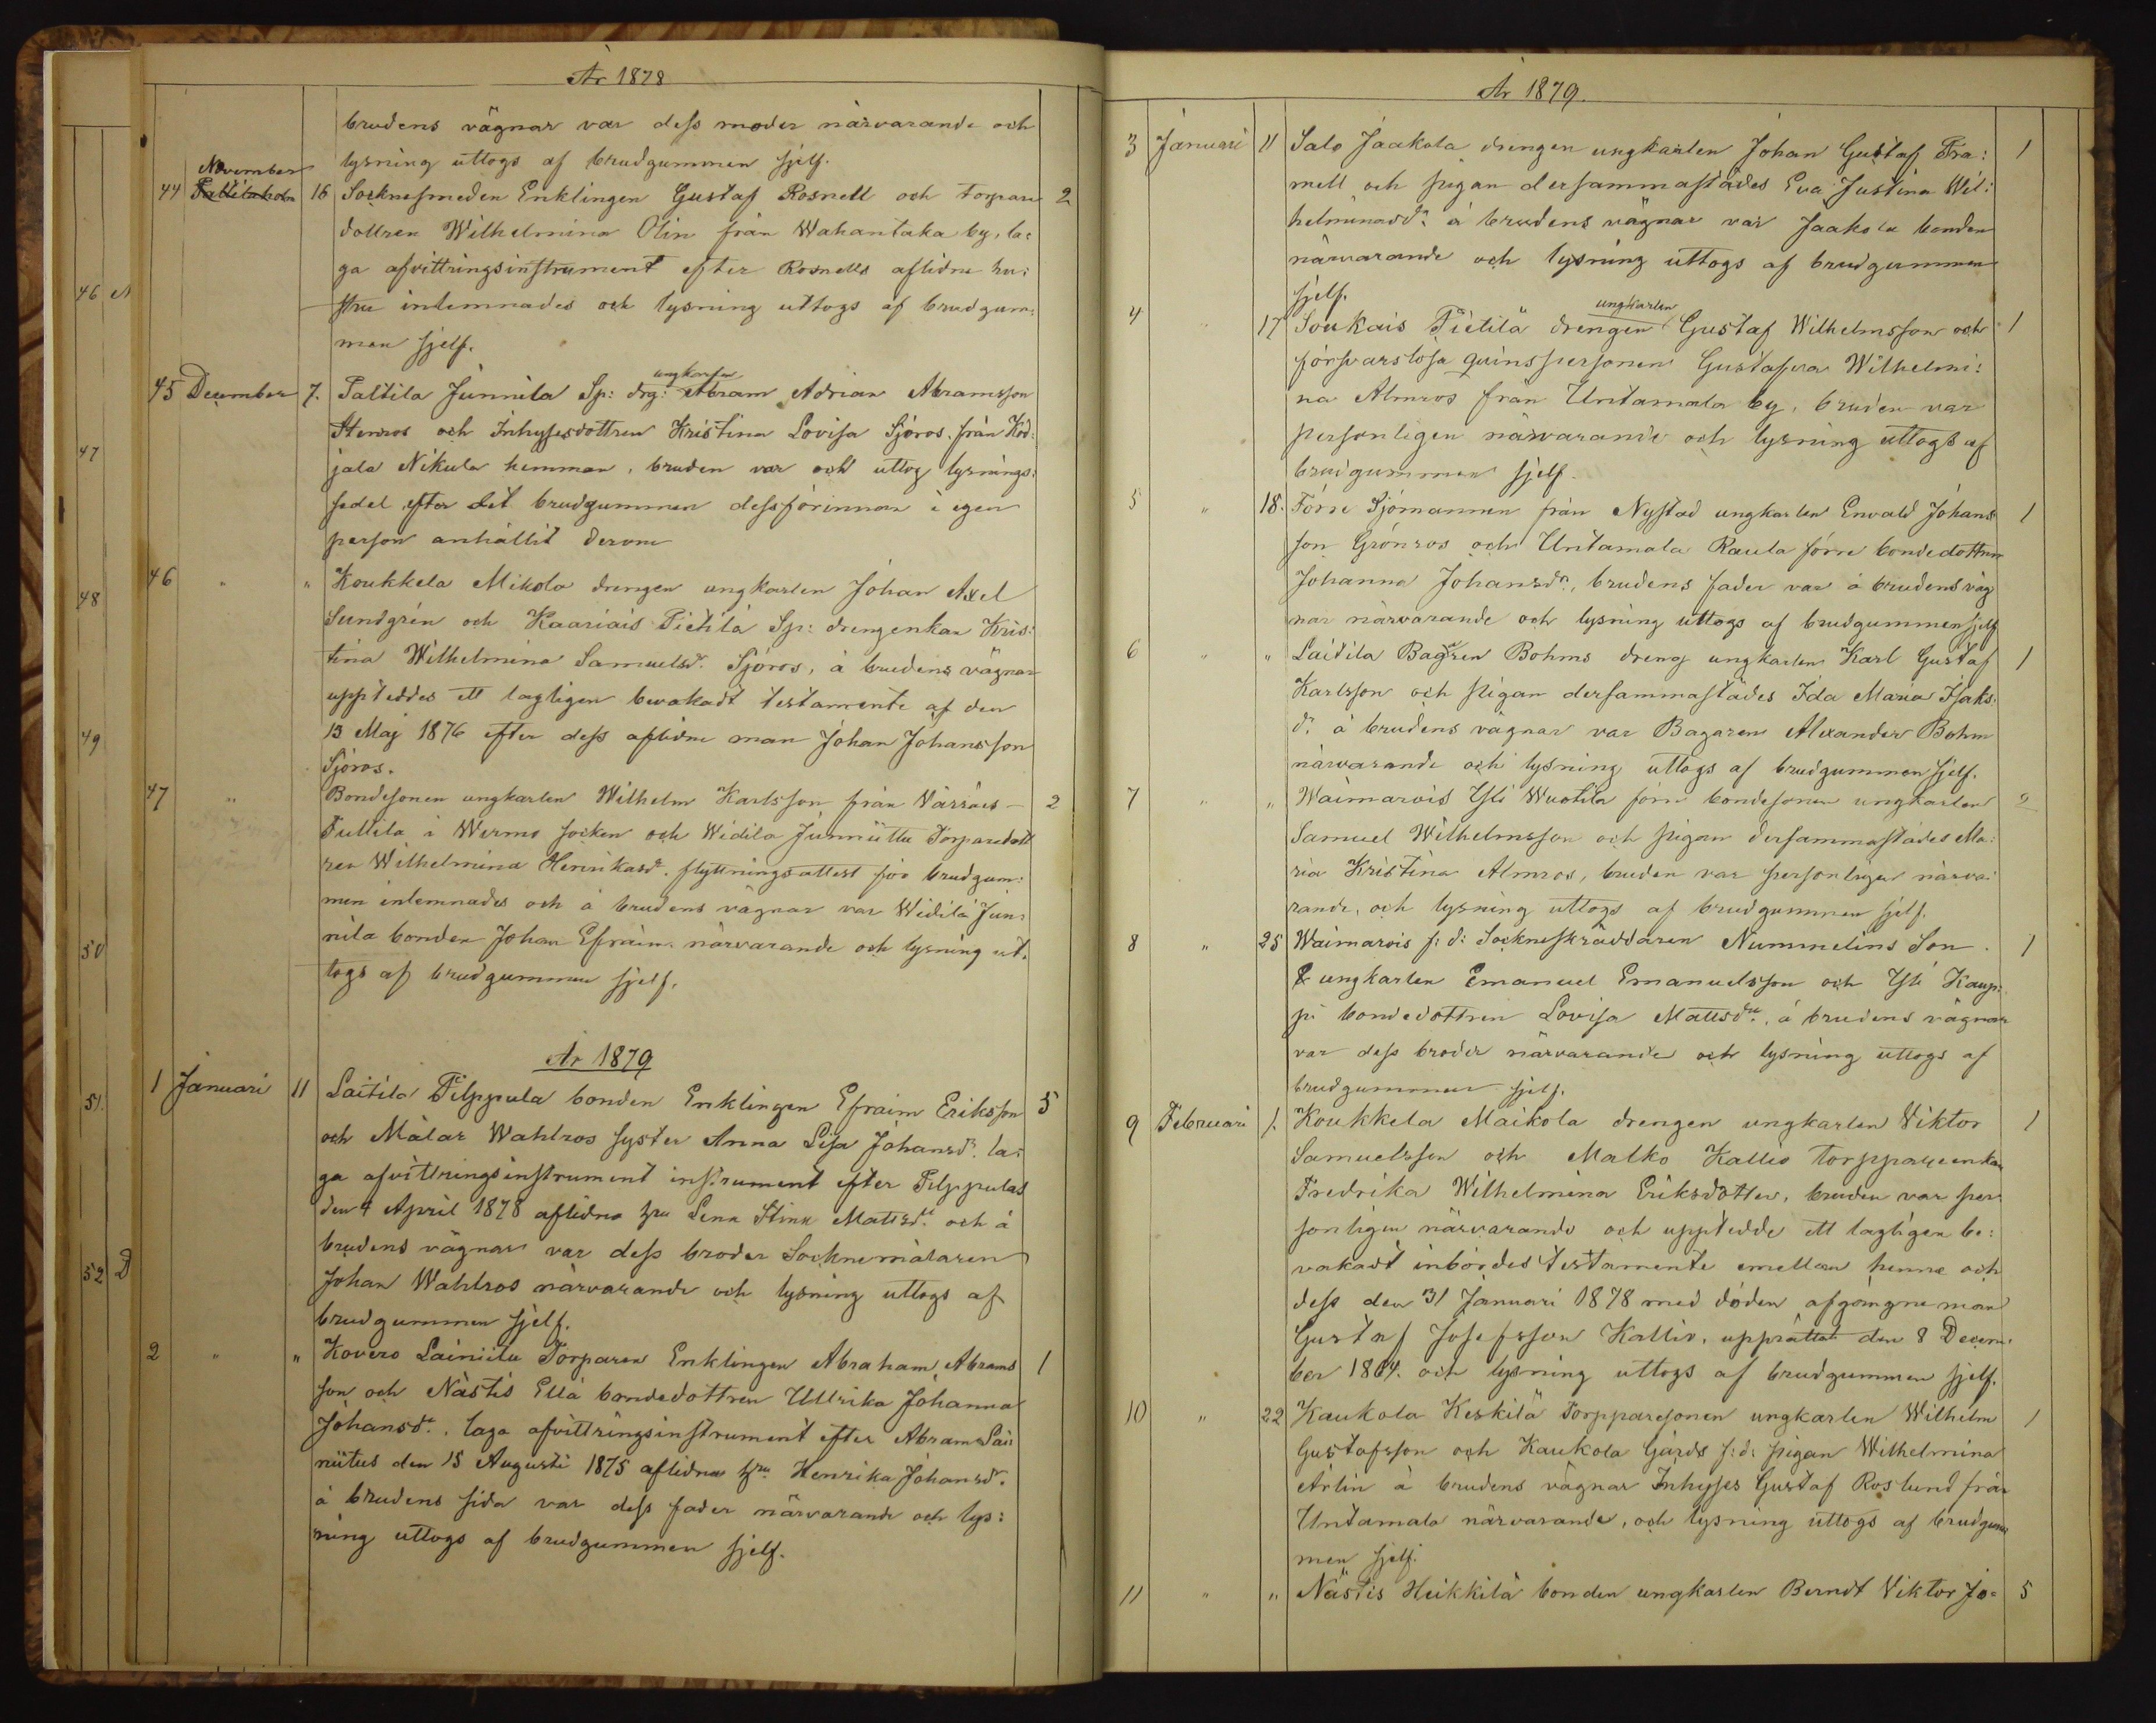 År 1878
brudens vägnar var dess moder närvarande och
lysning uttogs af brudgummen sjelf.
November
44 16 Socknesmeden Enklingen Gustaf Rosnell och torpare 2
dottren Wilhelmina Olin från Wahantaka by, la:
ga afvittringsinstrument efter Rosnells aflidne hu:
stru inlemnades och lysning uttogs af brudgum:
men sjelf.
ungkarlen
45 December 7. Paltila Junnila Sp: drg: Abram Adrian Abramsson
Stenros och Inhysesdottren Kristina Lovisa Sjöros, från Kod:
jala Nikula hemman, bruden var och uttog lysnings:
sedel efter det brudgummen dessförinnan i egen
person anhållit derom
46 " " Koukkela Mikola drengen ungkarlen Johan Axel
Sundgrén och Kaariais Pietilä Sp: drengenkan Kris:
tina Wilhelmina Samuelsdr. Sjöros, å brudens vägnar
uppteddes ett lagligen bevakadt testamente af den
13 Maj 1876 efter dess aflidne man Johan Johansson
Sjöros.
47 " Bondesonen ungkarlen Wilhelm Karlsson från 2
Tullila i Wirmo socken och Widila Junniittu Torparedott
ren Wilhelmina Henriksdr. flyttningsattest för brudgum:
men inlemnades och å brudens vägnar var Widilä Jun:
nila bonden Johan Efraim närvarande och lysning ut:
togs af brudgummen sjelf.
År 1879
1 Januari 11 Laitila Filppula bonden Enklingen Efraim Eriksson 5
och Målar Wahlros syster Anna Lisa Johansdr. la:
ga afvittringsinstrument instrument efter Filppulas
den 4 April 1878 aflidna hru Lena Stina Mattsdr. och å
brudens vägnar var dess broder Socknemålaren
Johan Wahlros närvarande och lysning uttogs af
brudgummen sjelf.
2 " " Kovero Lainiitu Torparen Enklingen Abraham Abrams 1
son och Nästis Ellä bondedottren Ullrika Johanna
Johansdr. laga afvittringsinstrument efter Abram Lai
niitus den 15 Augusti 1875 aflidna hru Henrika Johansdr.
å brudens sida var dess fader närvarande och lys:
ning uttogs af brudgummen sjelf.
46
47
48
49
50
51.
52 D
År 1879.
3 Januari 11 Salo Jaakola drengen ungkarlen Johan Gustaf Fra: 1
mell och pigan dersammastädes Eva Justina Wil:
helminadr. å brudens vägnar var Jaakola bonden
närvarande och lysning uttogs af brudgummen
sjelf.
ungkarlen
4 " 17 Soukais Pietilä drengen Gustaf Wilhelmsson och 1
försvarslösa qvinspersonen Gustafva Wilhelmi:
na Almros från Untamala by, bruden var
personligen närvarande och lysning uttogs af
brudgummen sjelf.
5 " 18. Förre Sjömannen från Nystad ungkarlen Envald Johans 1
son Grönros och Untamala Raula förre bondedottren
Johanna Johansdr., brudens fader var å brudens väg
nar närvarande och lysning uttogs af brudgummen sjelf
6 " " Laitila Bagaren Bohms dreng ungkarlen Karl Gustaf 1
Karlsson och pigan dersammastädes Ida Maria Isaks:
dr. å brudens vägnar var Bagaren Alexander Bohm
närvarande och lysning uttogs af brudgummen sjelf.
7 " " Waimarois Yli Wuotila förre bondesonen ungkarlen 2
Samuel Wilhelmsson och pigan dersammastädes Ma:
ria Kristina Almros, bruden var personligen närva:
rande, och lysning uttogs af brudgummen sjelf.
8 " 25 Waimarois f: d: Sockneskräddaren Nummelins Son 1
ungkarlen Emanuel Emanuelsson och Yli Kaup:
pi bondedottren Lovisa Mattsdr., å brudens vägnar
var dess broder närvarande och lysning uttogs af
brudgummen sjelf.
9 Februari 1. Koukkela Maikola drengen ungkarlen Viktor 1
Samuelsson och Malko Kallio torppareenkan
Fredrika Wilhelmina Eriksdotter, bruden var per
sonligen närvarande och upptedde ett lagligen be:
vakadt inbördes testamente emellan henne och
dess den 31 Januari 1878 med döden afgångne man
Gustaf Josefsson Kallio, upprättat den 8 Decem:
ber 1864. och lysning uttogs af brudgummen sjelf.
10 " 22 Kaukola Keskilä Torpparesonen ungkarlen Wilhelm 1
Gustafsson och Kaukola Gårds f: d: pigan Wilhelmina
Arlin å brudens vägnar Inhyses Gustaf Roslund från
Untamala närvarande, och lysning uttogs af brudgum
men sjelf.
11 " " Nästis Heikkilä bonden ungkarlen Berndt Viktor Jo= 5